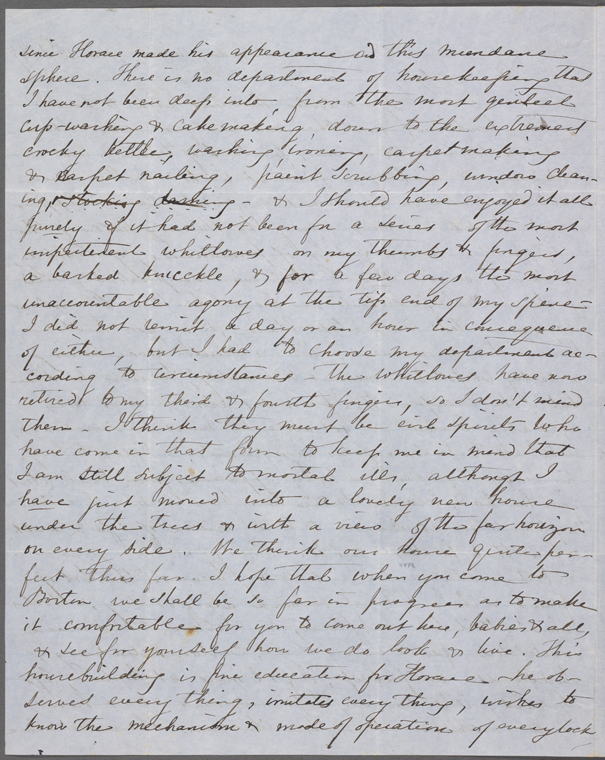 since Horace made his appearance on this mundane
sphere. There is no department of housekeeping that
I have not been deep into, from the most genteel
cup-washing & cake making, down to the extremest
crocky kettle, washing, ironing, carpet making
& carpet nailing, paint scrubbing, window clean-
ing, & stocking darning - & I should have enjoyed it all
purely if it had not been for a series of the most
impertinent whitlows on my thumbs & fingers,
a barked knuckle, & for a few days the most
unaccountable agony at the tip end of my spine -
I did not remit a day or an hour in consequence
of either, but I had to choose my department ac-
cording to circumstances - The whitlows have now
retired to my third & fourth fingers, so I don't mind
them - I think they must be evil spirits who
have come in that form to keep me in mind that
I am still subject to mortal ills, although I
have just moved into a lovely new house
under the trees & with a view of the far horizon
on every side. We think our house quite per-
fect thus far. I hope that when you come to
Boston we shall be so far in progress as to make
it comfortable for you to come out here, babies & all,
& see for yourself how we do look & live. This
housebuilding is fine education for Horace - he ob-
serves everything, imitates everything, wishes to
know the mechanism & mode of operation of every lock